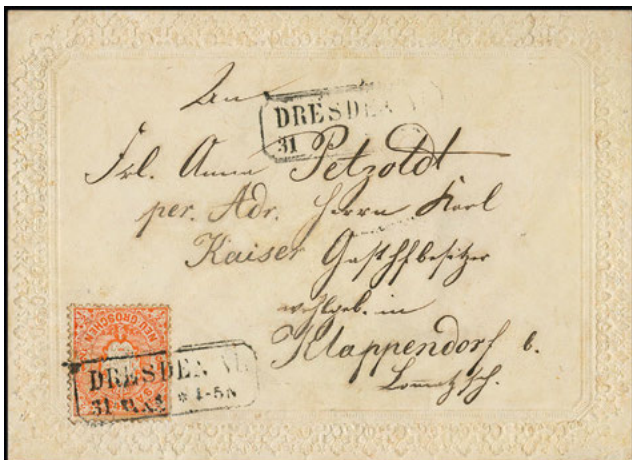 An
DRESDEN
31
Frl. Anna Petzoldt
per. Adr. Herrn Karl
Kaiser Gasthofbesitzer
wohlgeb. in
Klappendorf b.
Lommatzsch.
NEU GROSCHEN
DRESDEN
31 4-5N